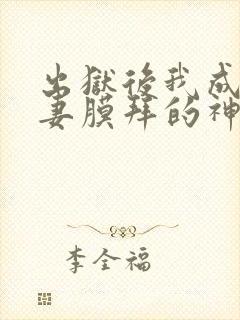 出獄後我成
妻膜拜的神
李全福